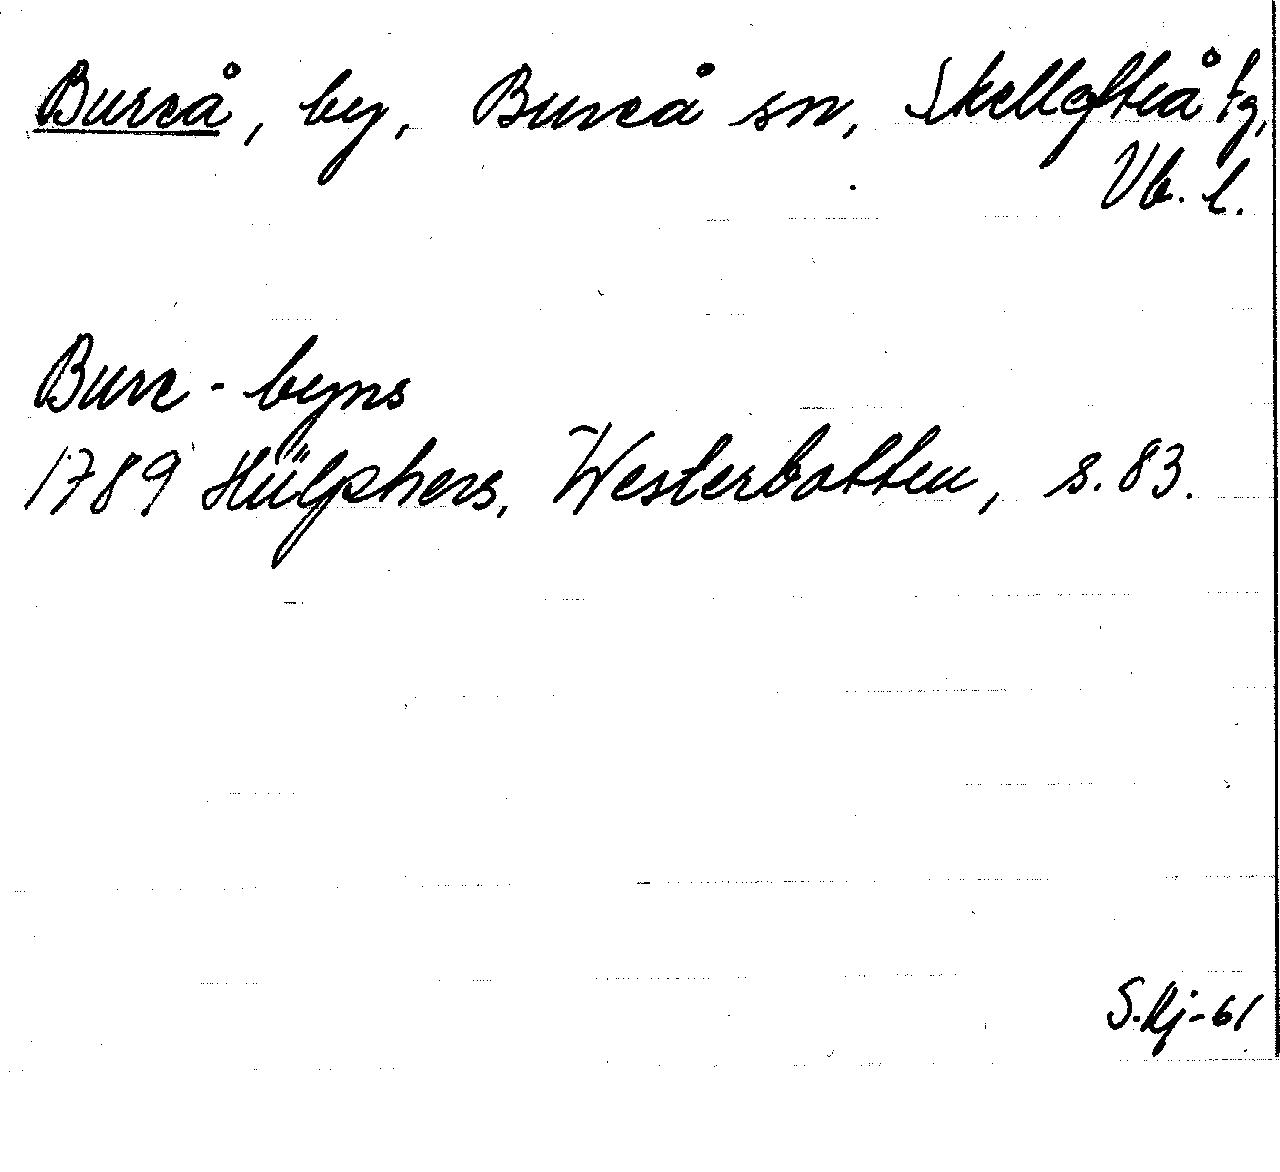 Bureå, by, Bureå sn, Skellefteå tg,
Vb. l.
Bure-byns
1789 Hülphers, Westerbotten, s. 83.
S.Lj-61